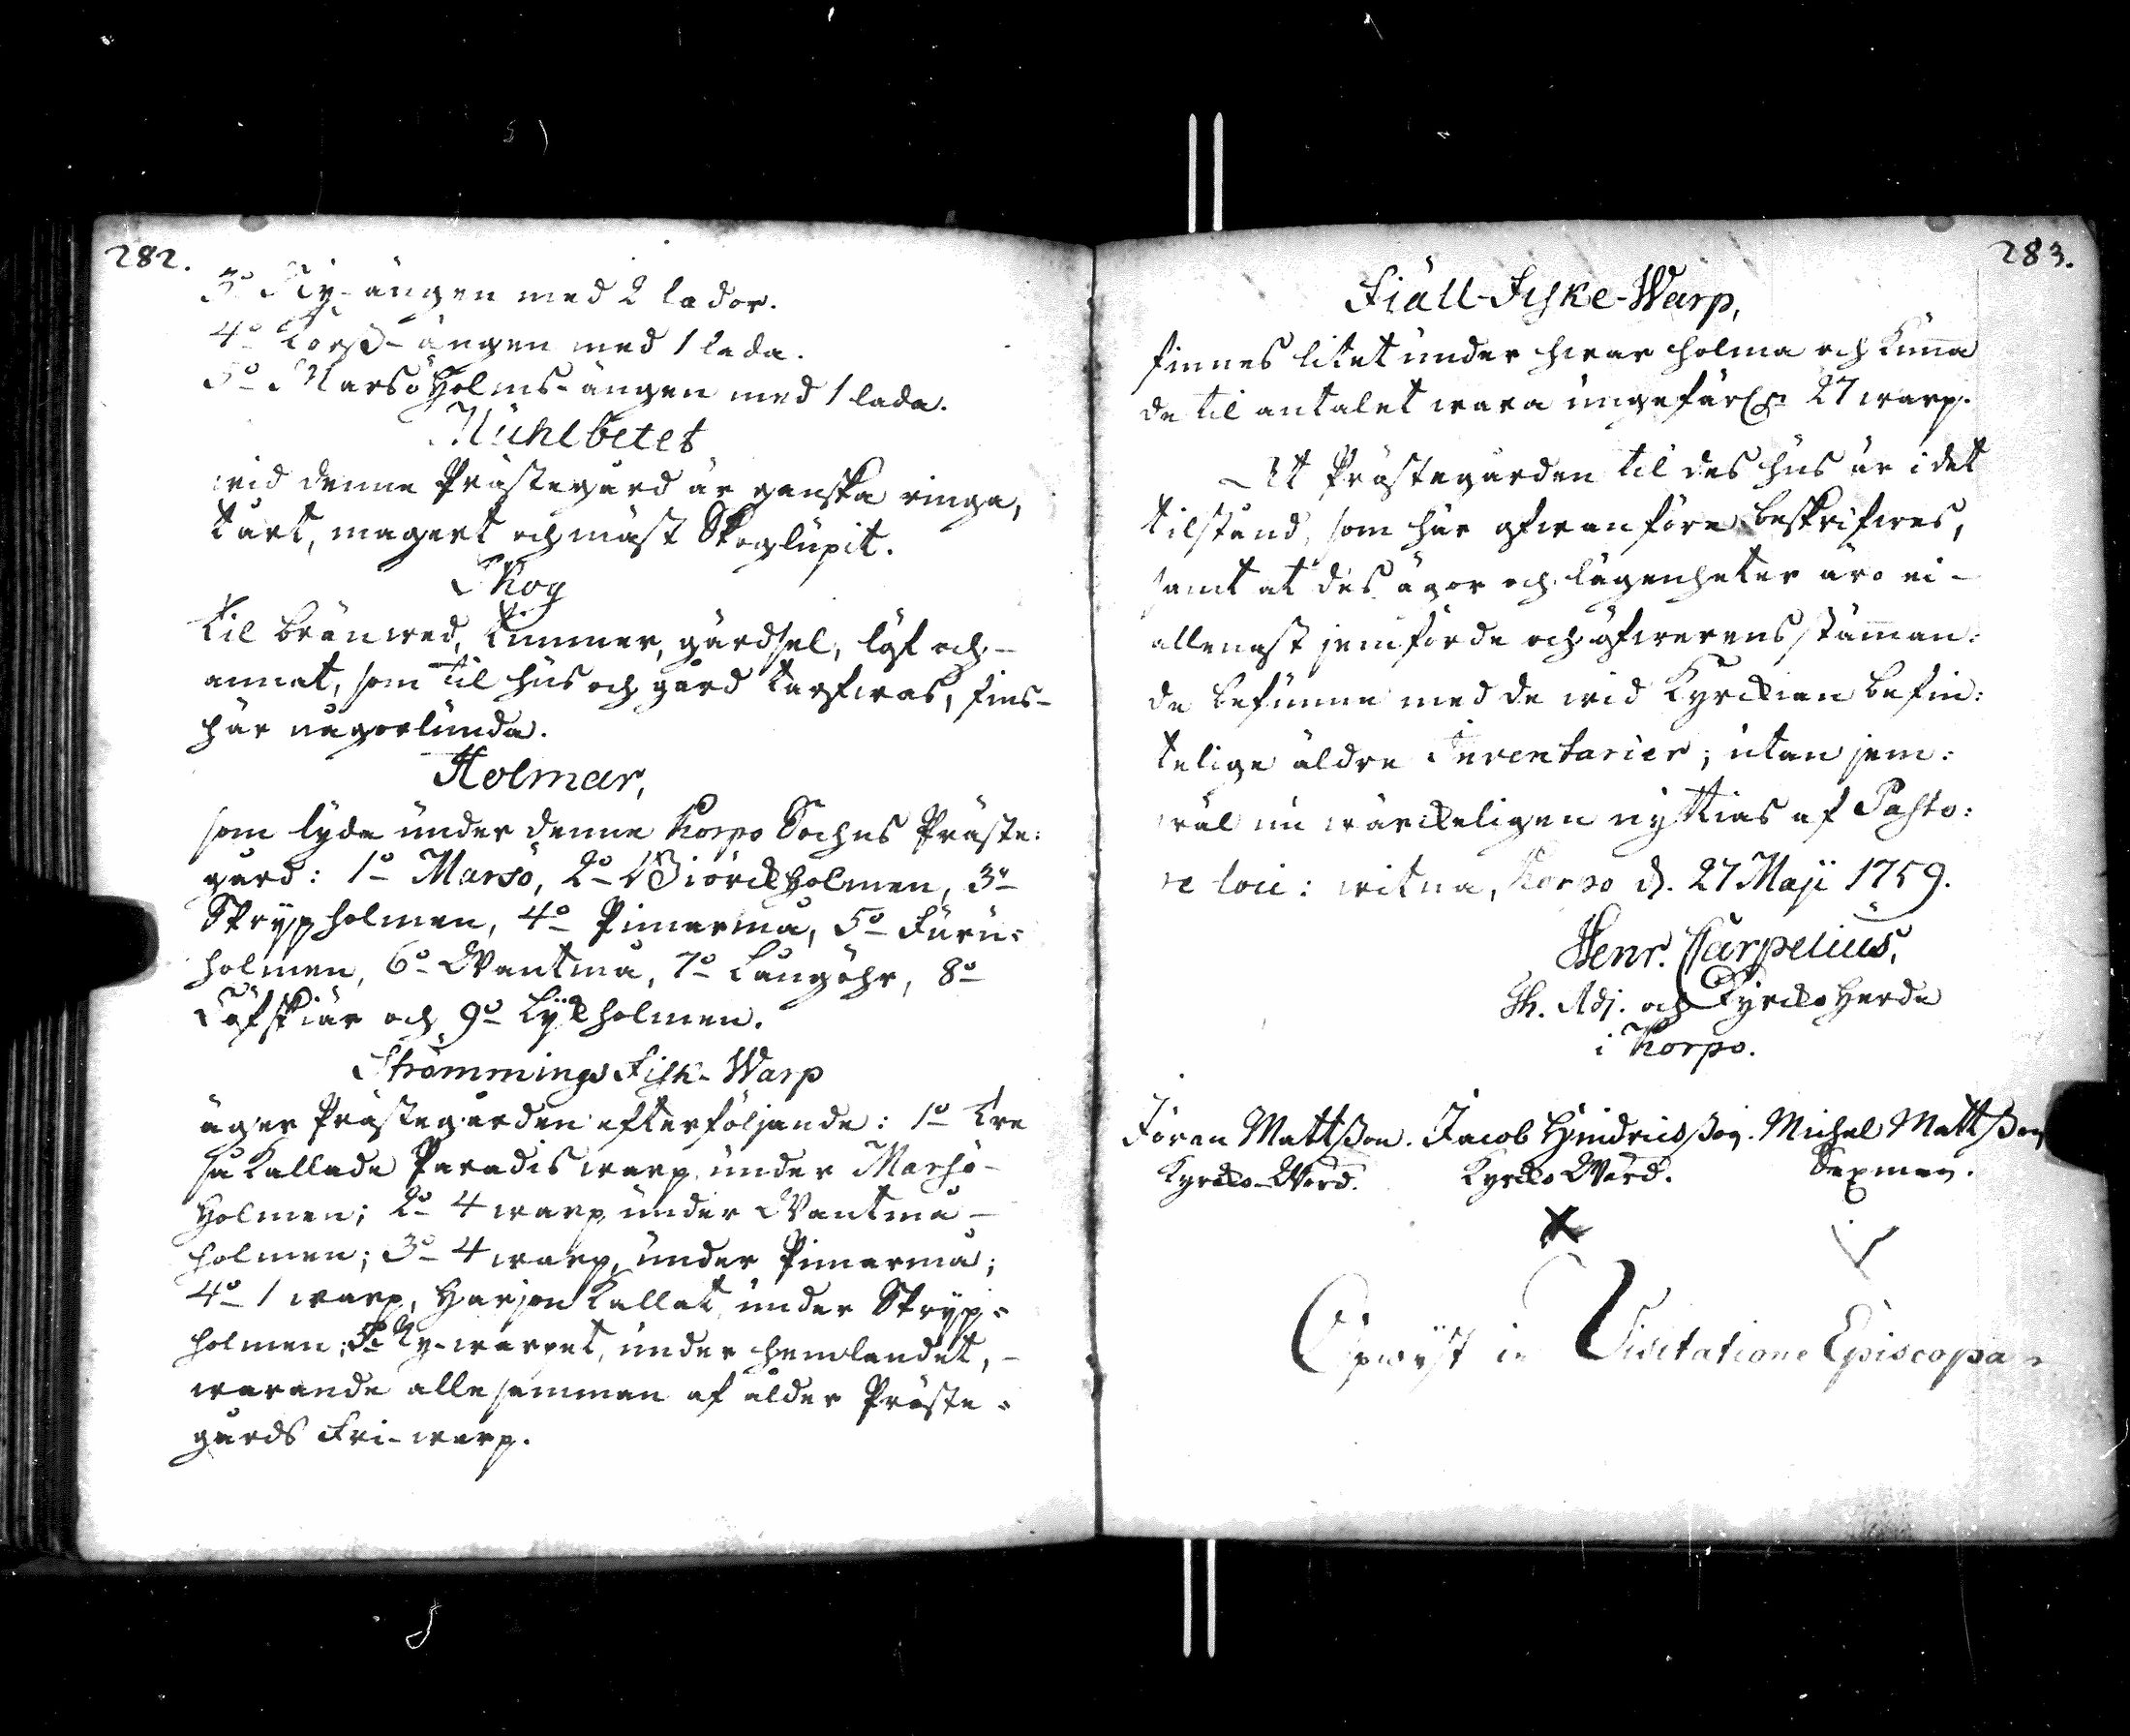 282.
3o Ry-ängen med 2 lador.
4o Korß-ängen med 1 lada.
5o Marsö Holms-ängen med 1 lada.
Mühlbetet
wid denne Prästegård är ganska ringa,
tårt, magert och mäst Skoglupit.
Skog
til bränwed, timmer, gärdsel, löf och
annat, som til hus och gård tarfwas, fins
här någorlunda.
Holmar,
som lyda under denne Korpo Sochns Präste:
gård: 1o Marsö, 2o Biörckholmen, 3o
Strypholmen, 4o Pimarma, 5o Furu=
holmen, 6o Wantma, 7o Långöhr, 8o
Löfskiär och 9o Lyckholmen.
Strömmings Fisk-Warp
äger Prästegården efterföljande: 1o tre
så kallade Paradis warp under Marsö-
Holmen; 2o 4 warp under Wantma-
holmen; 3o 4 warp, under Pimarma;
4o 1 warp, Harjon kallat, under Stryp=
holmen; 5o Ry-warpet, under hemlandet,
warande allesamman af ålder Präste=
gårds Fri-warp.
283.
Fiäll-Fiske-Warp,
finnes litet under hwar holma och kunna
de til antalet wara ungefär 27 warp.
At Prästegården til des hus är i det
tilstånd, som här ofwanföre beskrifwes,
samt at des ägor och lägenheter äro ei-
allenast jemförde och öfwerensstämman:
de befunne med de wid Kyrckian befin:
telige äldre Inventarier; utan jem:
wäl nu wärckeligen nyttias af Pasto:
re loci: witna, Korpo d. 27 Maji 1759.
Henr. Carpelius,
Th. Adj. och Kyrckoherde
i Korpo.
Jören Mattßon. Jacob Hindricsßon. Michel Mattßon
Kyrcko-Werd. Kyrcko Werd. Sexman.
Opwist in Visitatione Episcopa